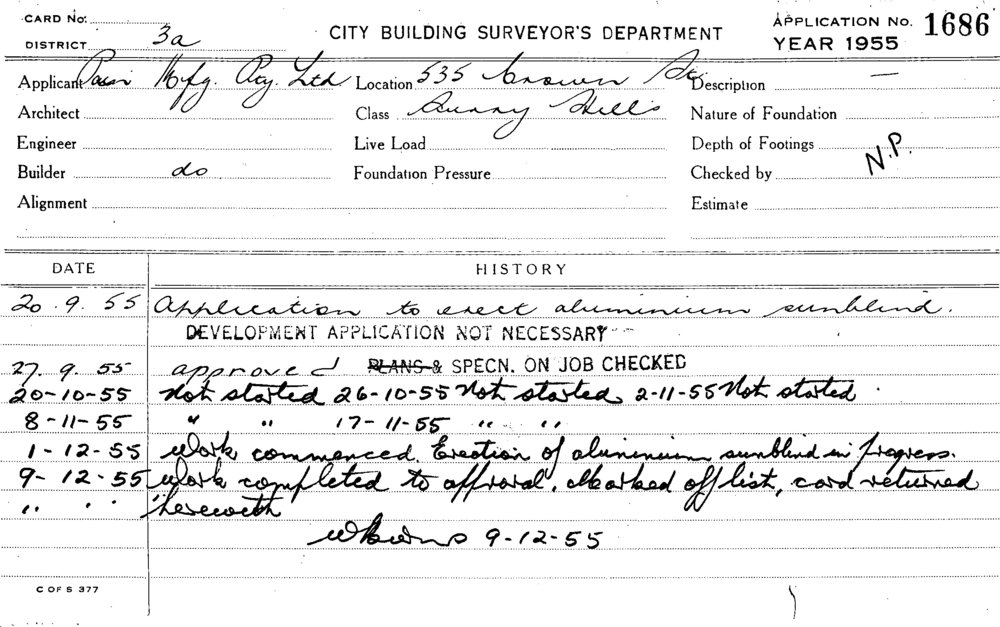 CARD No.
DISTRICT 3a
CITY BUILDING SURVEYOR'S DEPARTMENT
APPLICATION No. 1686
YEAR 1955
Applicant Mfg. Pty. Ltd Location 535 Crown St. Description —
Architect Class Surry Hills Nature of Foundation
Engineer Live Load Depth of Footings
Builder do Foundation Pressure Checked by N.P.
Alignment Estimate
DATE HISTORY
20.9.55 Application to erect aluminium sunblind.
DEVELOPMENT APPLICATION NOT NECESSARY
27.9.55 approved PLANS & SPECN. ON JOB CHECKED
20-10-55 Not started 26-10-55 Not started, 2-11-55 Not started
8-11-55 " " 17-11-55 " "
1-12-55 Work commenced. Erection of aluminium sunblind in progress.
9-12-55 Work completed to approval. Marked off list, card returned
" " " herewith
9-12-55
C OF S 377